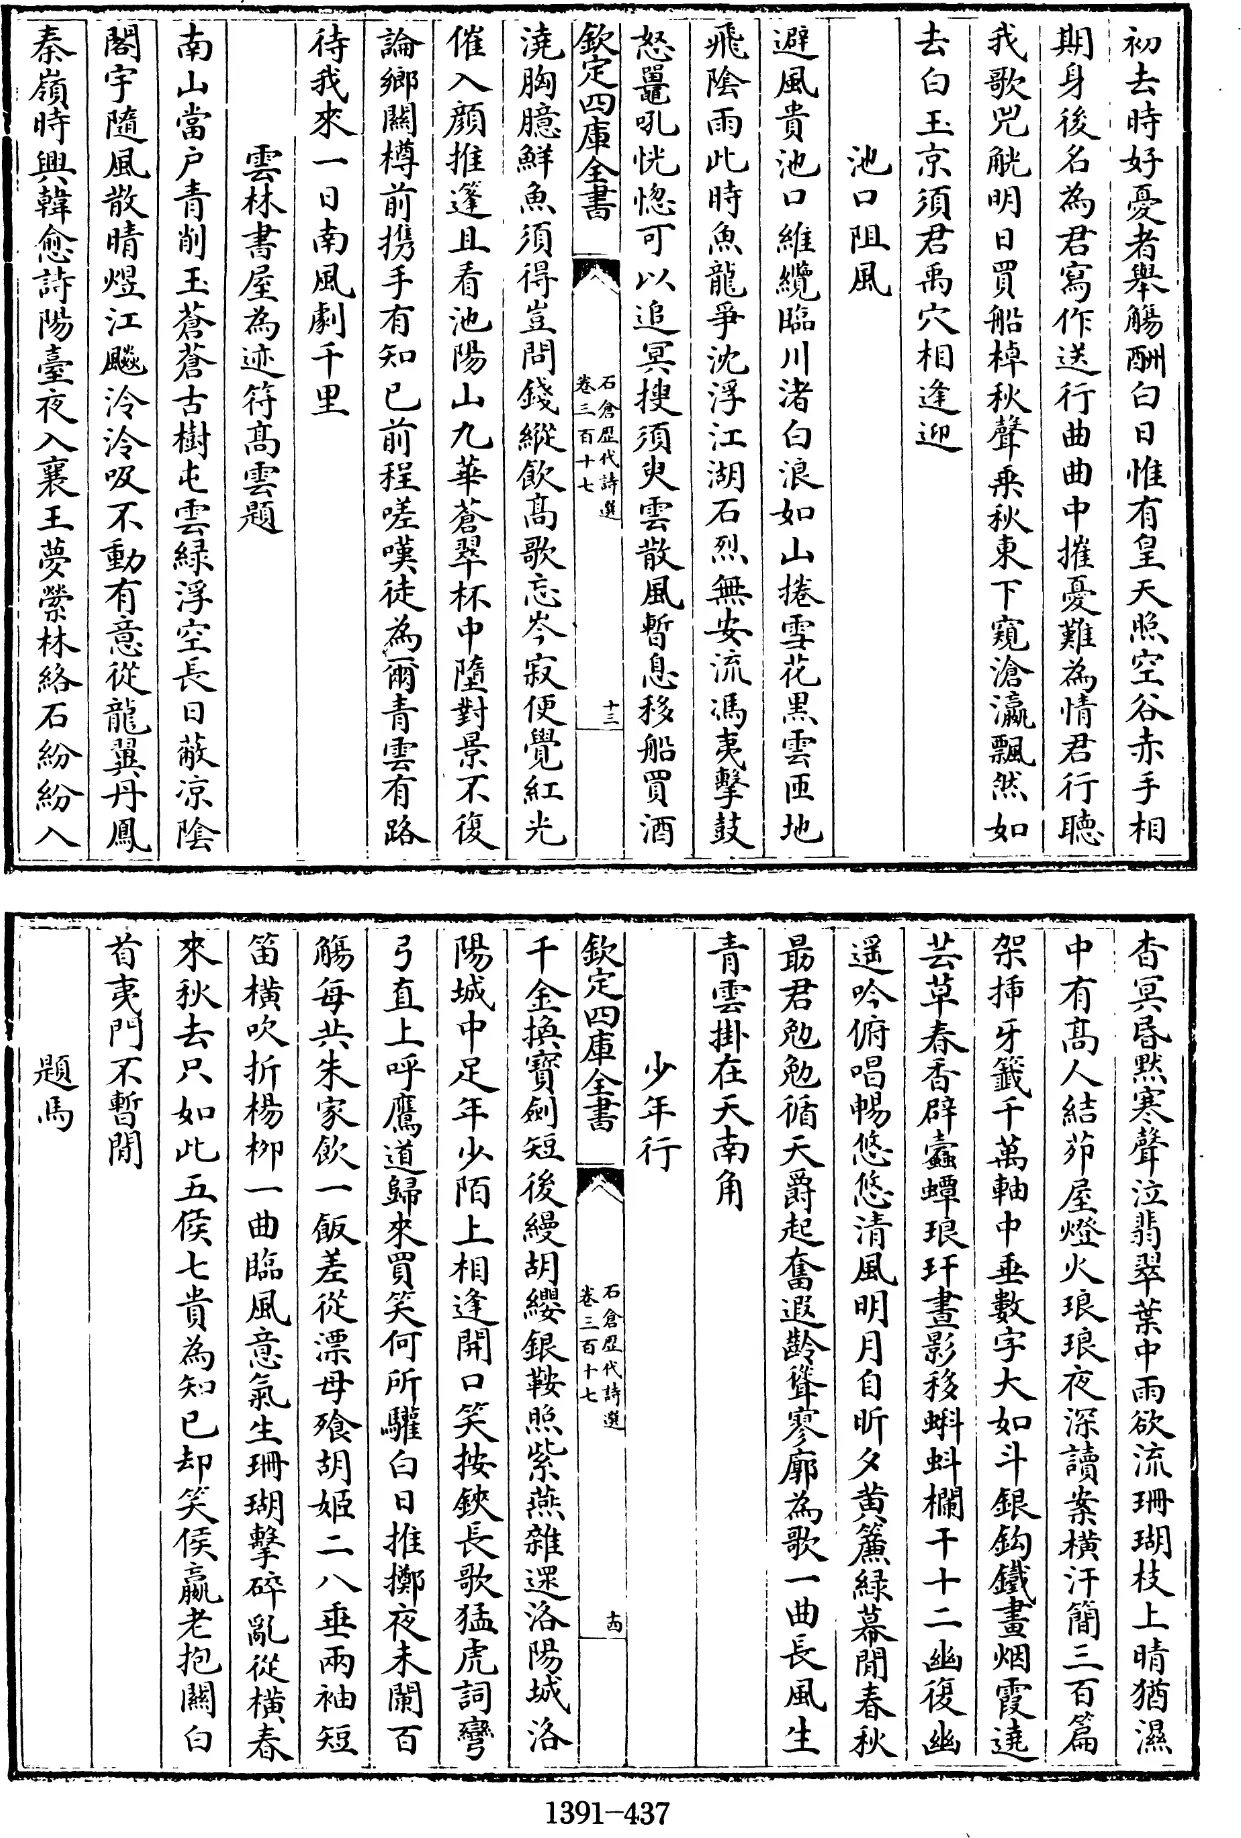 初去時好憂者舉觴酬白日惟有皇天照空谷赤手相
期身後名為君寫作送行曲曲中摧憂難為情君行聽
我歌兕觥明日買船棹秋聲乗秋東下窺滄瀛飄然如
去白玉京須君禹穴相逢迎
池口阻風
避風貴池口維纜臨川渚白浪如山捲雪花黒雲匝地
飛陰雨此時魚龍爭沈浮江湖石烈無安流馮夷擊鼓
怒鼉吼恍惚可以追冥搜須臾雲散風暫息移船買酒
欽定四庫全書
石倉歴代詩選
卷三百十七
十三
澆胸臆鮮魚須得豈問錢縱飲髙歌忘岑寂便覺紅光
催入顔推篷且看池陽山九華蒼翠杯中墮對景不復
論鄉關樽前携手有知已前程嗟嘆徒為爾青雲有路
待我來一日南風劇千里
雲林書屋為迹符髙雲題
南山當户青削玉蒼蒼古樹屯雲緑浮空長日蔽凉陰
閣宇隨風散晴煜江飈泠泠吸不動有意從龍翼丹鳳
秦嶺時興韓愈詩陽臺夜入襄王夢縈林絡石紛紛入
杳冥昏黙寒聲泣翡翠葉中雨欲流珊瑚枝上晴猶濕
中有髙人結茆屋燈火琅琅夜深讀案橫汗簡三百篇
架揷牙籤千萬軸中垂數字大如斗銀鈎鐵畫烟霞遶
芸草春香辟蠹蟫琅玕晝影移蝌蚪欄干十二幽復幽
遥吟俯唱暢悠悠清風明月自昕夕黄簾緑幕閒春秋
朂君勉勉循天爵起奮遐齡聳寥廓為歌一曲長風生
青雲掛在天南角
少年行
欽定四庫全書
石倉歴代詩選
卷三百十七
十四
千金換寳劍短後縵胡纓銀鞍照紫燕雜遝洛陽城洛
陽城中足年少陌上相逢開口笑按鋏長歌猛虎詞彎
弓直上呼鷹道歸來買笑何所驩白日推擲夜未闌百
觴每共朱家飲一飯差從漂母飱胡姬二八垂兩袖短
笛橫吹折楊栁一曲臨風意氣生珊瑚擊碎亂從橫春
來秋去只如此五侯七貴為知已却笑侯嬴老抱關白
首夷門不暫閒
題馬
1391-437